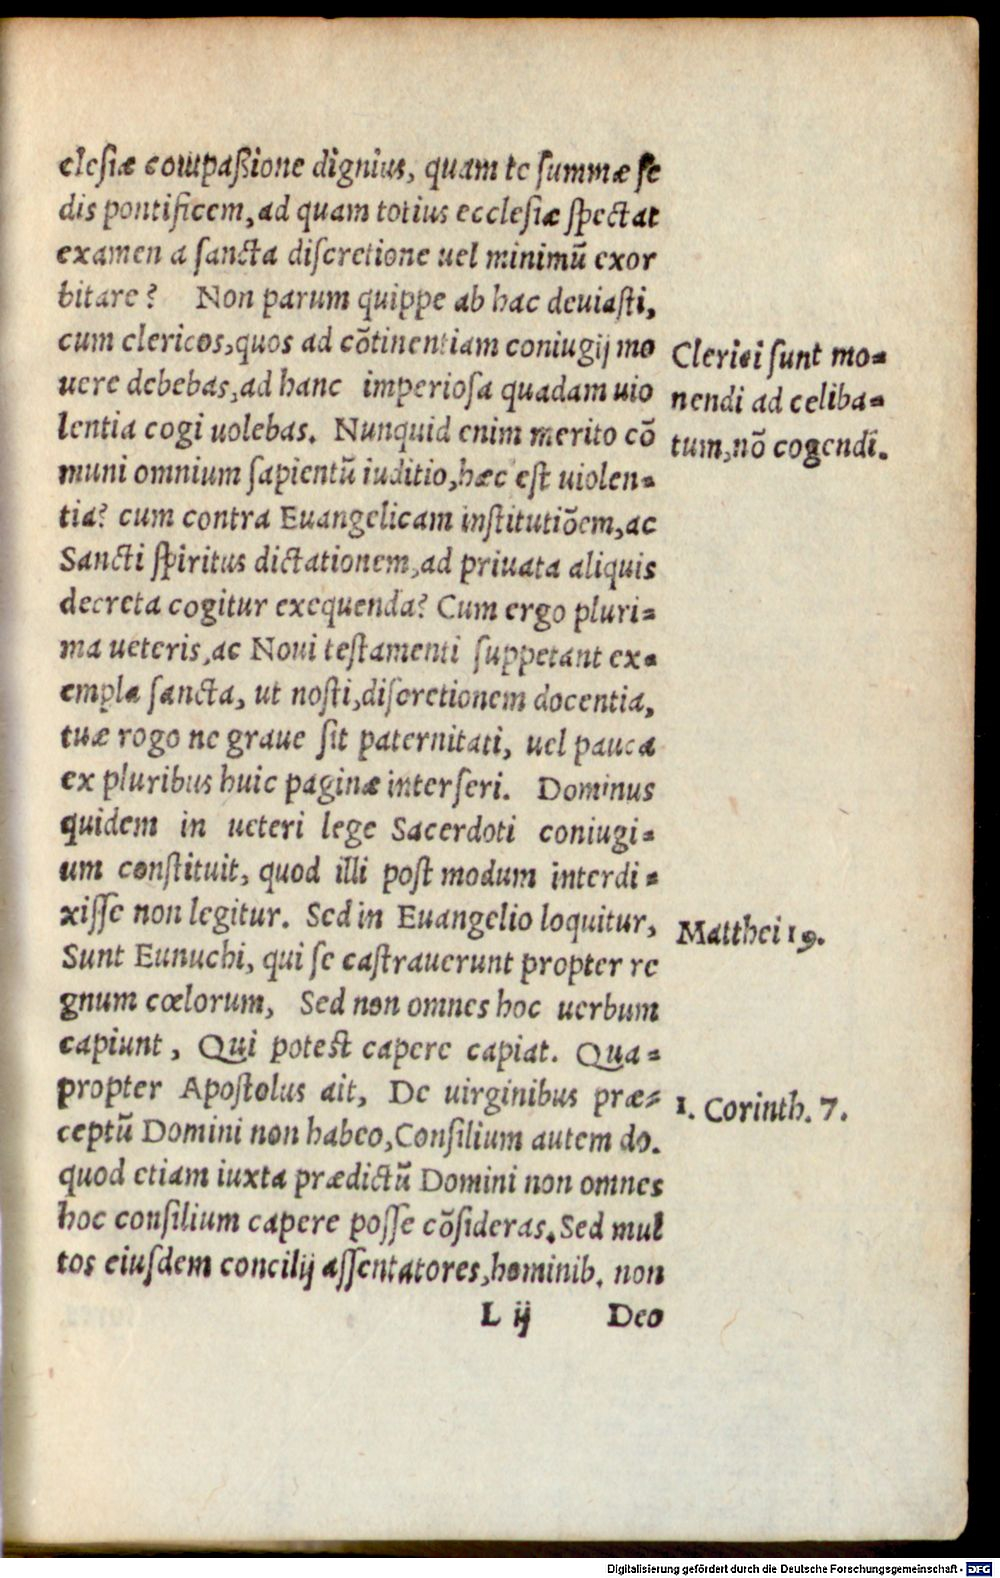 clesiæ compaßione dignius, quam te summæ se
dis pontificem, ad quam totius ecclesiæ spectat
examen a sancta discretione uel minimū exor
bitare? Non parum quippe ab hac deuiasti,
cum clericos, quos ad cōtinentiam coniugij mo
uere debebas, ad hanc imperiosa quadam uio
lentia cogi uolebas. Nunquid enim merito cō
muni omnium sapientū iuditio, hæc est uiolen=
tia? cum contra Euangelicam institutiōem, ac
Sancti spiritus dictationem, ad priuata aliquis
decreta cogitur exequenda? Cum ergo pluri=
ma ueteris, ac Noui testamenti suppetant ex=
empla sancta, ut nosti, discretionem docentia,
tuæ rogo ne graue sit paternitati, uel pauca
ex pluribus huic paginæ interseri. Dominus
quidem in ueteri lege Sacerdoti coniugi=
um constituit, quod illi post modum interdi=
xisse non legitur. Sed in Euangelio loquitur,
Sunt Eunuchi, qui se castrauerunt propter re
gnum cœlorum, Sed non omnes hoc uerbum
capiunt, Qui potest capere capiat. Qua=
propter Apostolus ait, De uirginibus præ=
ceptū Domini non habeo, Consilium autem do.
quod etiam iuxta prædictū Domini non omnes
hoc consilium capere posse cōsideras. Sed mul
tos eiusdem concilij assentatores, hominib. non
L ij Deo
Clerici sunt mo=
nendi ad celiba=
tum, nō cogendi.
Matthei 19.
1. Corinth. 7.
Digitalisierung gefördert durch die Deutsche Forschungsgemeinschaft - DFG